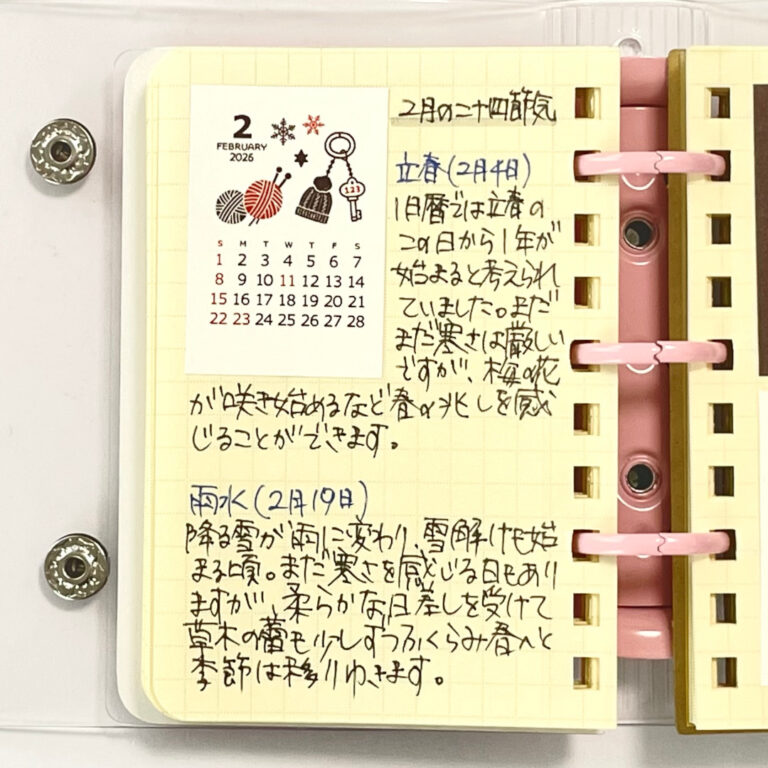 2
FEBRUARY
2026
123
S M T W T F S
1 2 3 4 5 6 7
8 9 10 11 12 13 14
15 16 17 18 19 20 21
22 23 24 25 26 27 28
2月の二十四節気
立春(2月4日)
旧暦では立春の
この日から1年が
始まると考えられ
ていました。まだ
まだ寒さは厳しい
ですが、梅の花
が咲き始めるなど春の兆しを感
じることができます。
雨水(2月19日)
降る雪が雨に変わり、雪解けも始
まる頃。まだ寒さを感じる日もあり
ますが、柔らかな日差しを受けて
草木の蕾も少しずつふくらみ春へと
季節は移りゆきます。